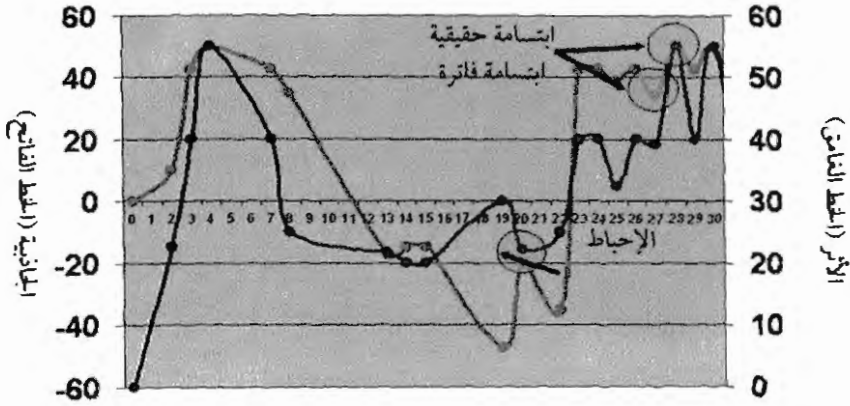 60
40
20
0
-20
-40
-60
60
50
40
30
20
10
0
ابتسامة حقيقية
ابتسامة فاترة
0 1 2 3 4 5 6 7 8 9 10 11 12 13 14 15 16 17 18 19 20 21 22 23 24 25 26 27 28 29 30
الإحباط
الجاذبية (الخط الفاتح)
الأثر (الخط الغامق)